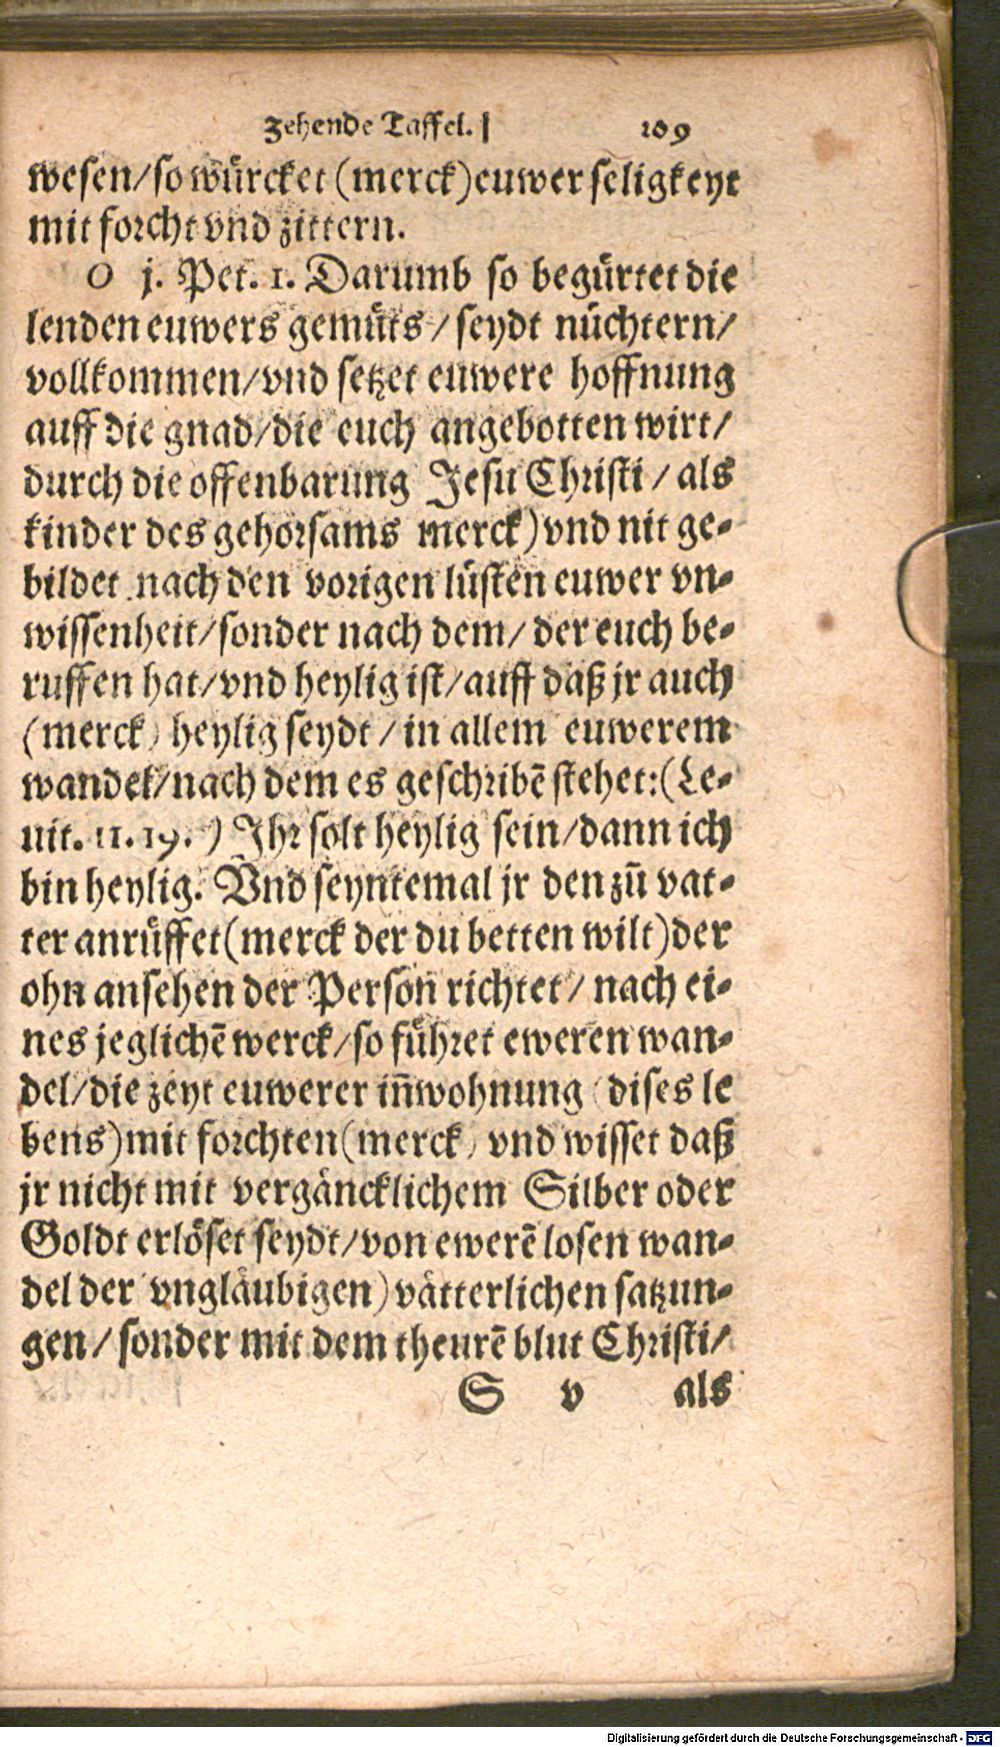 Zehende Taffel. 109
wesen/so würcket (merck) euwer seligkeyt
mit forcht vnd zittern.
O j. Pet. 1. Darumb so begürtet die
lenden euwers gemüts/ seydt nüchtern/
vollkommen/vnd setzet euwere hoffnung
auff die gnad/die euch angebotten wirt/
durch die offenbarung Jesu Christi/ als
kinder des gehorsams merck) vnd nit ge-
bildet nach den vorigen lüsten euwer vn-
wissenheit/sonder nach dem/ der euch be-
ruffen hat/vnd heylig ist/auff daß jr auch
(merck) heylig seydt/in allem euwerem
wandel/nach dem es geschribẽ stehet:(Le-
uit. 11. 19.) Ihr solt heylig sein/dann ich
bin heylig. Vnd seyntemal jr den zũ vat-
ter anrüffet(merck der du betten wilt)der
ohn ansehen der Person richtet/ nach ei-
nes jeglichẽ werck/so führet eweren wan-
del/die zeyt euwerer iñwohnung (dises le
bens)mit forchten(merck) vnd wisset daß
jr nicht mit vergäncklichem Silber oder
Goldt erlöset seydt/von ewerẽ losen wan-
del der vngläubigen) vätterlichen satzun-
gen/ sonder mit dem theurẽ blut Christi/
S v als
Digitalisierung gefördert durch die Deutsche Forschungsgemeinschaft - DFG